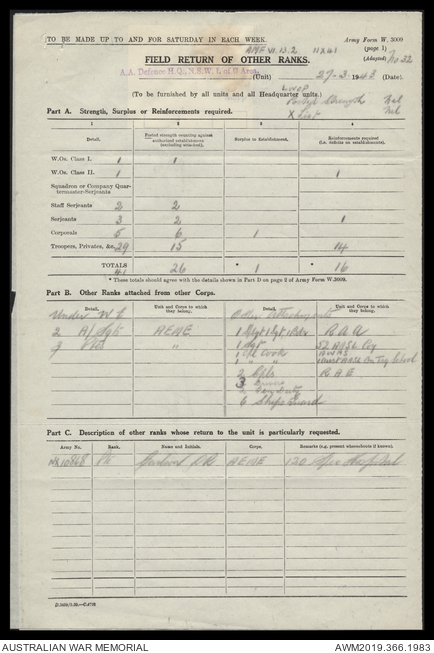 TO BE MADE UP TO AND FOR SATURDAY IN EACH WEEK.
Army Form W. 3009
(page 1)
(Adapted) No 32
FIELD RETURN OF OTHER RANKS.
A.A. Defence H.Q., N.S.W. L. of C Area.
(Unit) 27-3-1943 (Date).
(To be furnished by all units and all Headquarter units.)
X List Nil
Part A. Strength, Surplus or Reinforcements required.
1 2 3 4
Detail. Posted strength counting against authorized establishment (excluding attached). Surplus to Establishment. Reinforcements required (i.e. deficits on establishment).
W.On. Class I. 1 1
W.On. Class II. 1 1
Squadron or Company Quar-
termaster-Serjeants
Staff Serjeants 2 2
Serjeants 3 2 1
Corporals 5 6 1
Troopers, Privates, &c. 29 15 14
TOTALS 41 26 * 1 * 16
* These totals should agree with the details shown in Part D on page 2 of Army Form W.3009.
Part B. Other Ranks attached from other Corps.
Detail. Unit and Corps to which they belong. Detail. Unit and Corps to which they belong.
Under W.E. Other Attachments
2 A/Sgts AEME R A A
3 Ptes " 1 Sgt
1 Cpl Cook AWAS
2 Cpls R A E
3
2
6 Ships Guard
Part C. Description of other ranks whose return to the unit is particularly requested.
Army No. Rank. Name and Initials. Corps. Remarks (e.g. present whereabouts if known).
Pte AEME
D.3458/5.42.—C.4726
AUSTRALIAN WAR MEMORIAL
AWM2019.366.1983